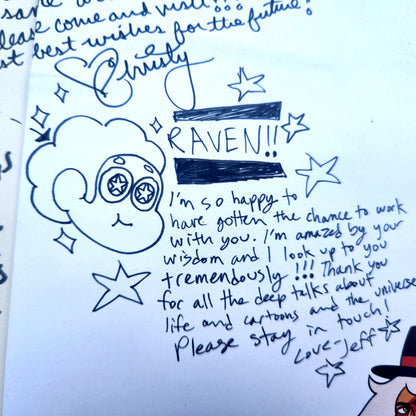 please come and visit!!!
best wishes for the future!
Christy
RAVEN!!
I'm so happy to
have gotten the chance to work
with you. I'm amazed by your
wisdom and I look up to you
tremendously!!! Thank you
for all the deep talks about universe
life and cartoons and the
Please stay in touch!
Love-Jeff